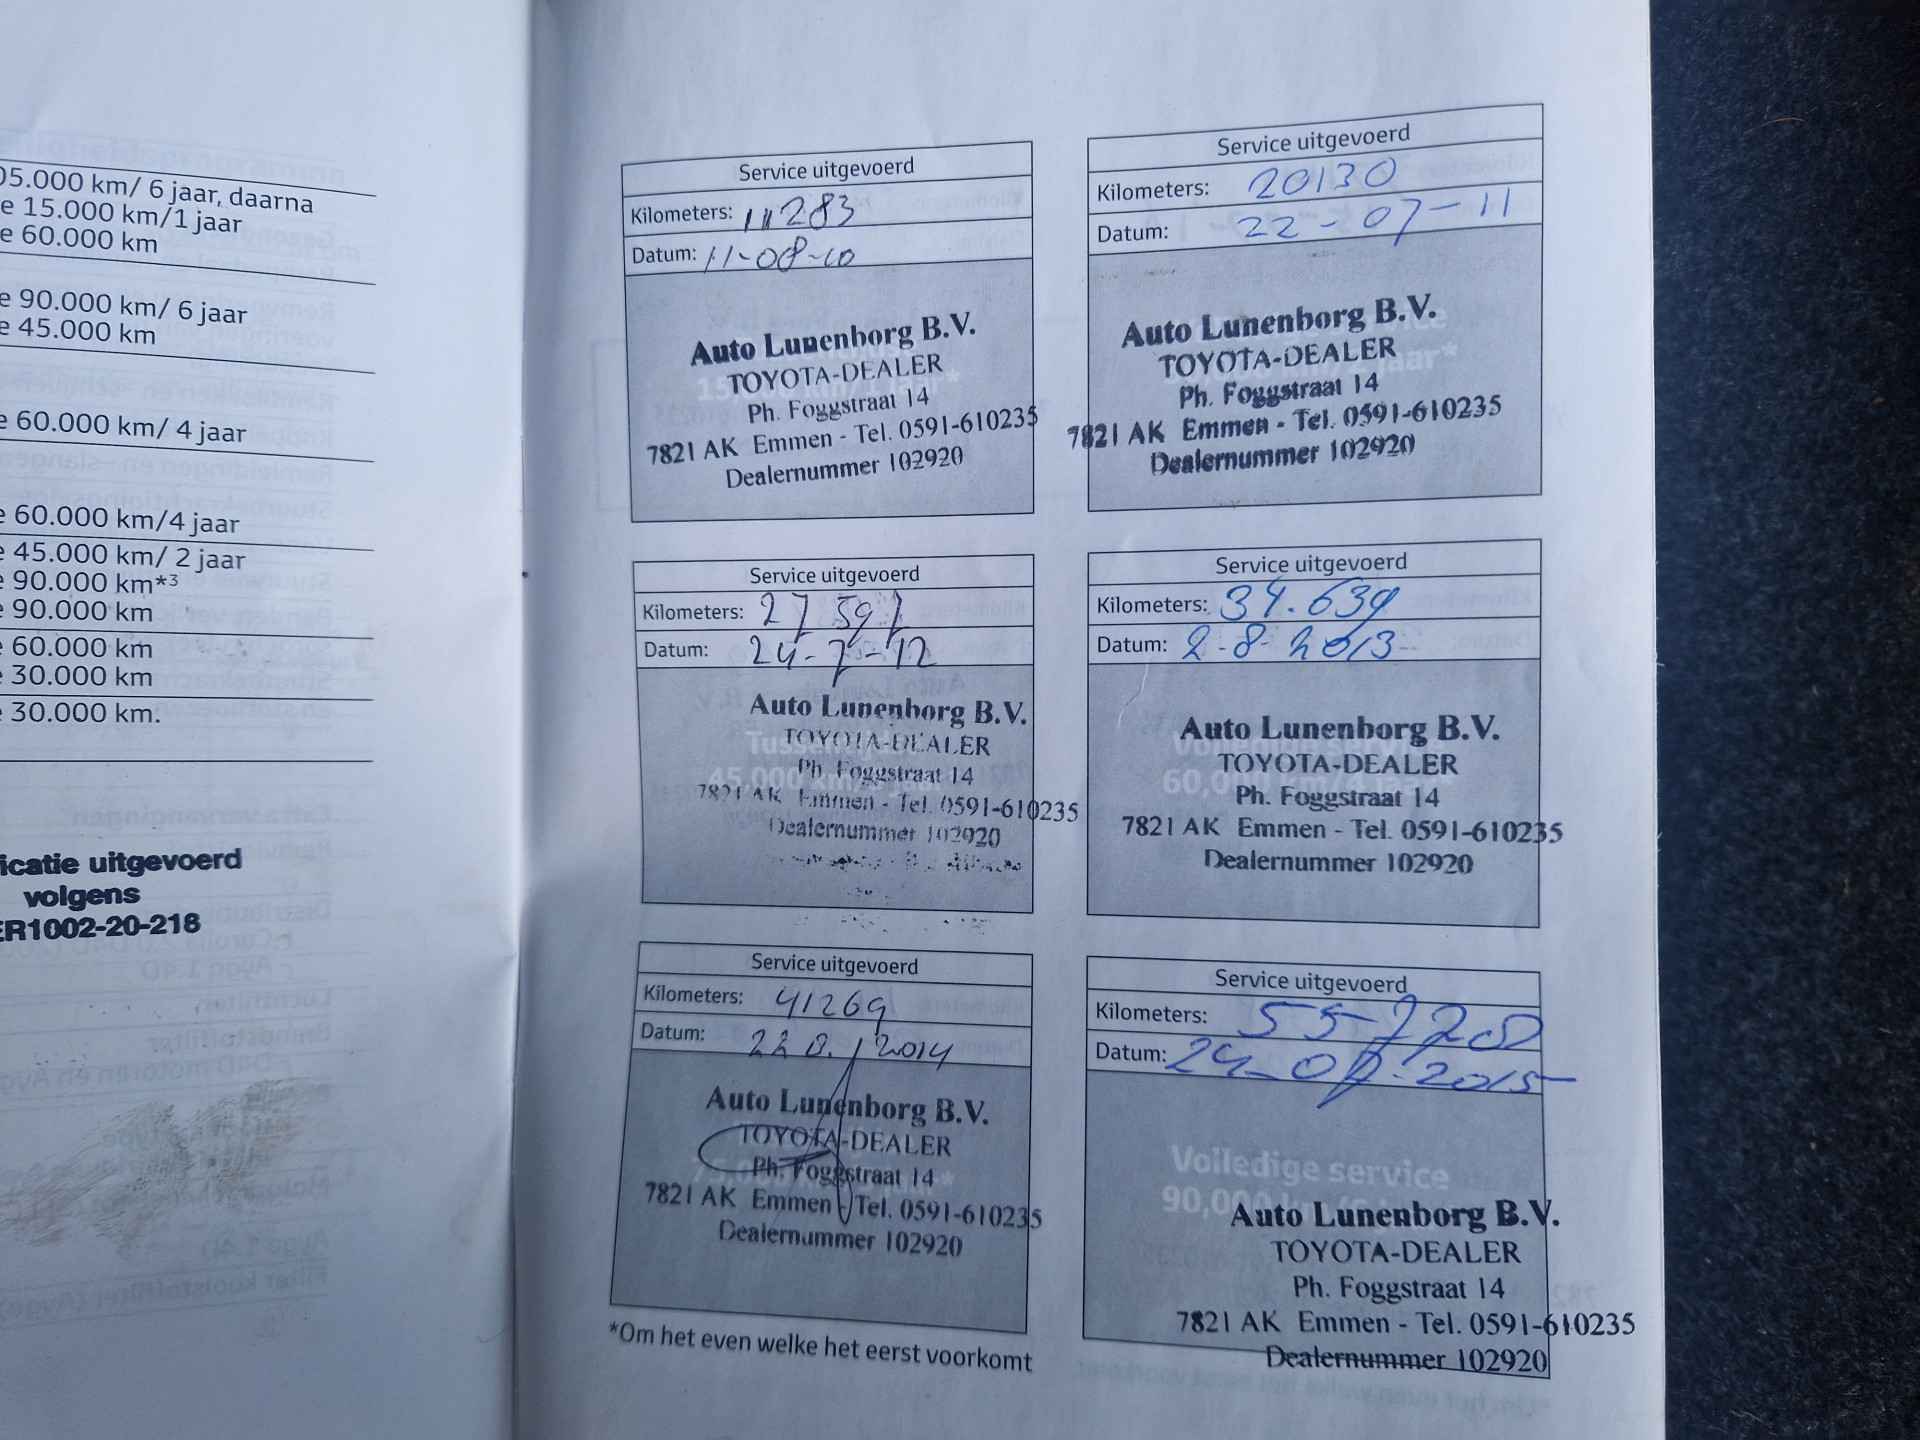 05.000 km/ 6 jaar, daarna
e 15.000 km/1 jaar
e 60.000 km
e 90.000 km/ 6 jaar
e 45.000 km
e 60.000 km/ 4 jaar
e 60.000 km/4 jaar
e 45.000 km/ 2 jaar
e 90.000 km*3
e 90.000 km
e 60.000 km
e 30.000 km
e 30.000 km.
icatie uitgevoerd
volgens
ER1002-20-218
Service uitgevoerd
Kilometers: 11283
Datum: 11-08-10
Auto Lunenborg B.V.
TOYOTA-DEALER
Ph. Foggstraat 14
7821 AK Emmen - Tel. 0591-610235
Dealernummer 102920
Service uitgevoerd
Kilometers: 20130
Datum: 22-07-11
Auto Lunenborg B.V.
TOYOTA-DEALER
Ph. Foggstraat 14
7821 AK Emmen - Tel. 0591-610235
Dealernummer 102920
Service uitgevoerd
Kilometers: 27597
Datum: 24-7-12
Auto Lunenborg B.V.
TOYOTA-DEALER
45,000 km
Ph. Foggstraat 14
7821 AK Emmen - Tel. 0591-610235
Dealernummer 102920
Service uitgevoerd
Kilometers: 34.639
Datum: 2-8-2013
Auto Lunenborg B.V.
Volledige service
TOYOTA-DEALER
60,000 km
Ph. Foggstraat 14
7821 AK Emmen - Tel. 0591-610235
Dealernummer 102920
Service uitgevoerd
Kilometers: 41269
Datum: 2014
Auto Lunenborg B.V.
TOYOTA-DEALER
Ph. Foggstraat 14
7821 AK Emmen - Tel. 0591-610235
Dealernummer 102920
Service uitgevoerd
Kilometers:
Datum:
Volledige service
90,000
Auto Lunenborg B.V.
TOYOTA-DEALER
Ph. Foggstraat 14
7821 AK Emmen - Tel. 0591-610235
Dealernummer 102920
*Om het even welke het eerst voorkomt